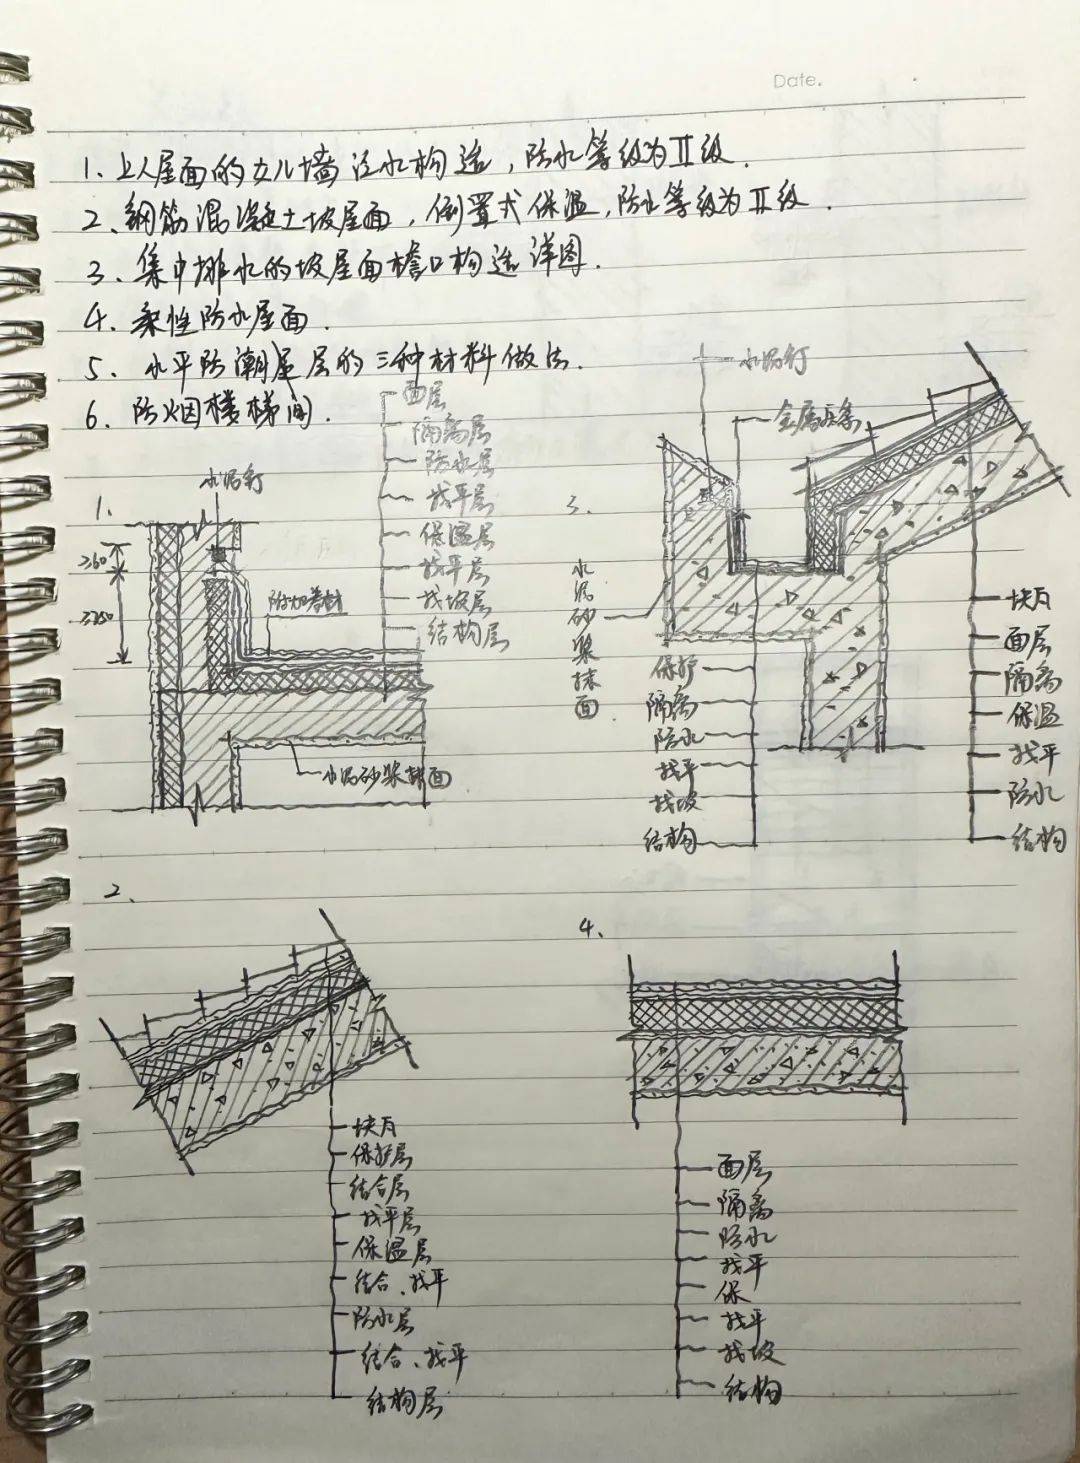 Date.
1、上人屋面的女儿墙泛水构造，防水等级为Ⅱ级.
2、钢筋混凝土坡屋面，倒置式保温，防水等级为Ⅱ级.
3、集中排水的坡屋面檐口构造详图.
4、柔性防水屋面.
5、水平防潮层的三种材料做法.
6、防烟楼梯间.
1.
水泥钉
≥60
≥250
附加卷材
水泥砂浆抹面
面层
隔离层
防水层
找平层
保温层
找平层
找坡层
结构层
3.
水泥钉
金属压条
水泥砂浆抹面
保护
隔离
防水
找平
找坡
结构
块瓦
面层
隔离
保温
找平
防水
结构
2、
块瓦
保护层
结合层
找平层
保温层
结合、找平
防水层
结合、找平
结构层
4、
面层
隔离
防水
找平
保
找平
找坡
结构